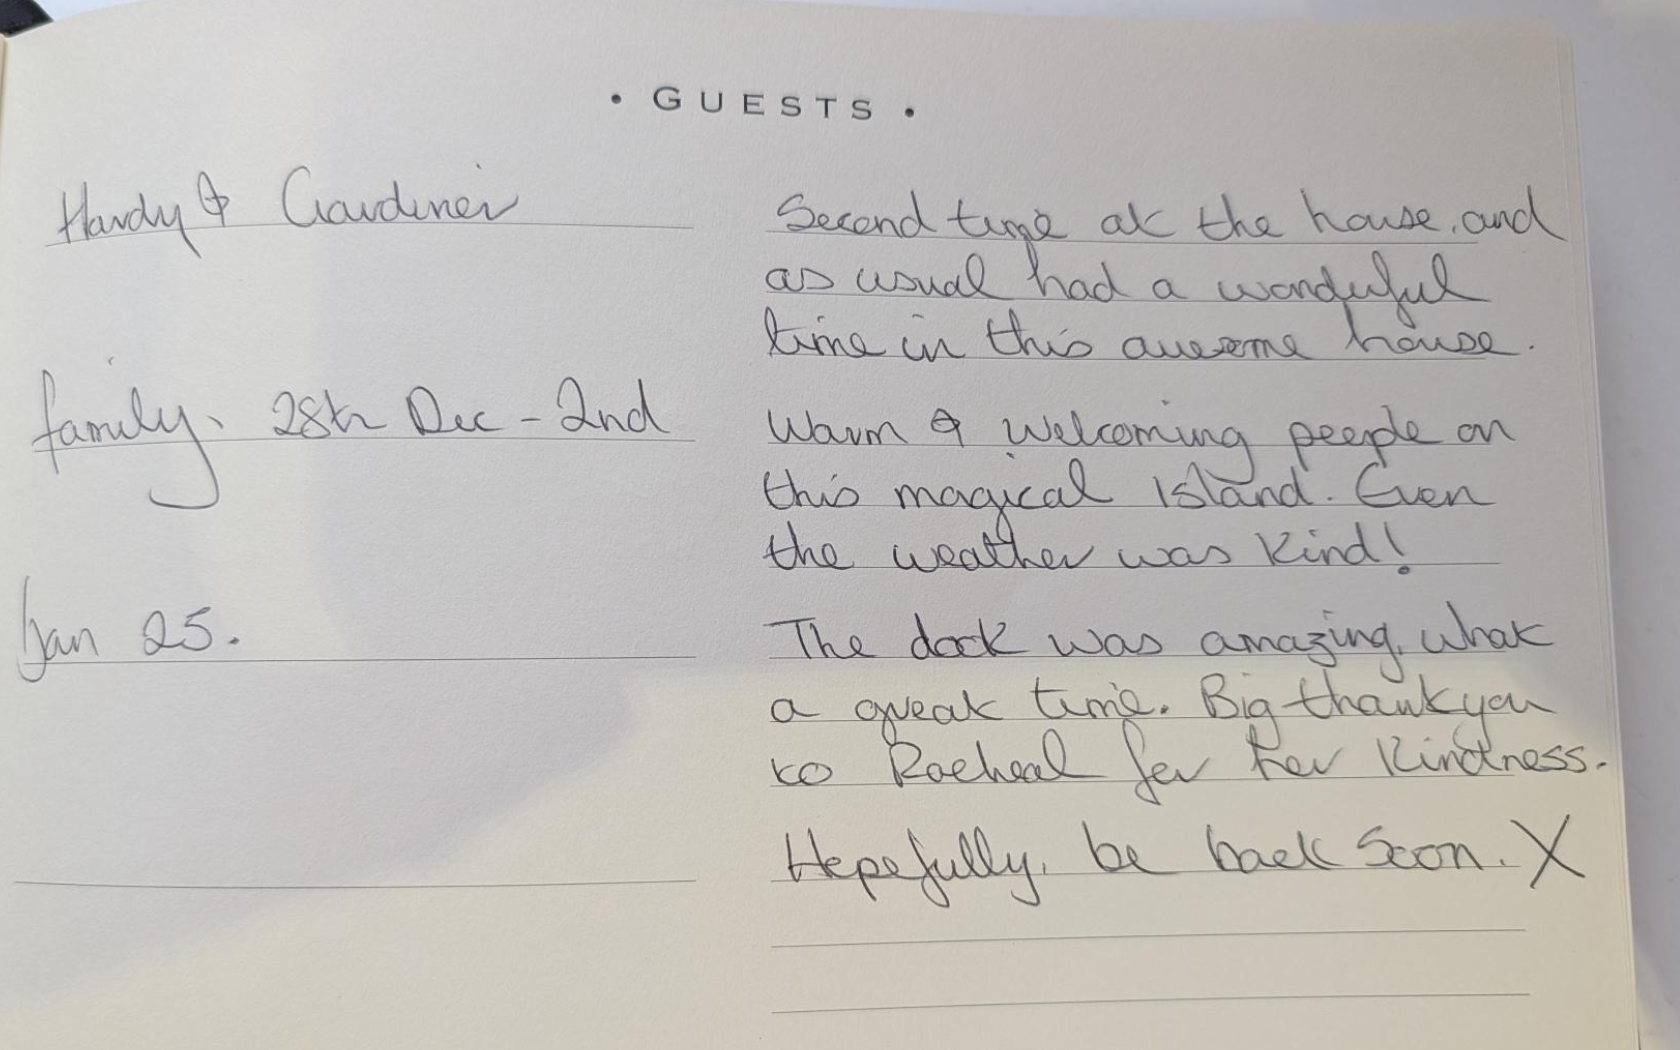 • GUESTS •
Hardy & Gardiner
family. 28th Dec - 2nd
Jan 25.
Second time at the house, and
as usual had a wonderful
time in this awesome house.
Warm & Welcoming people on
this magical Island. Even
the weather was kind!
The dock was amazing, what
a great time. Big thank you
to Racheal for her kindness.
Hopefully, be back soon. X